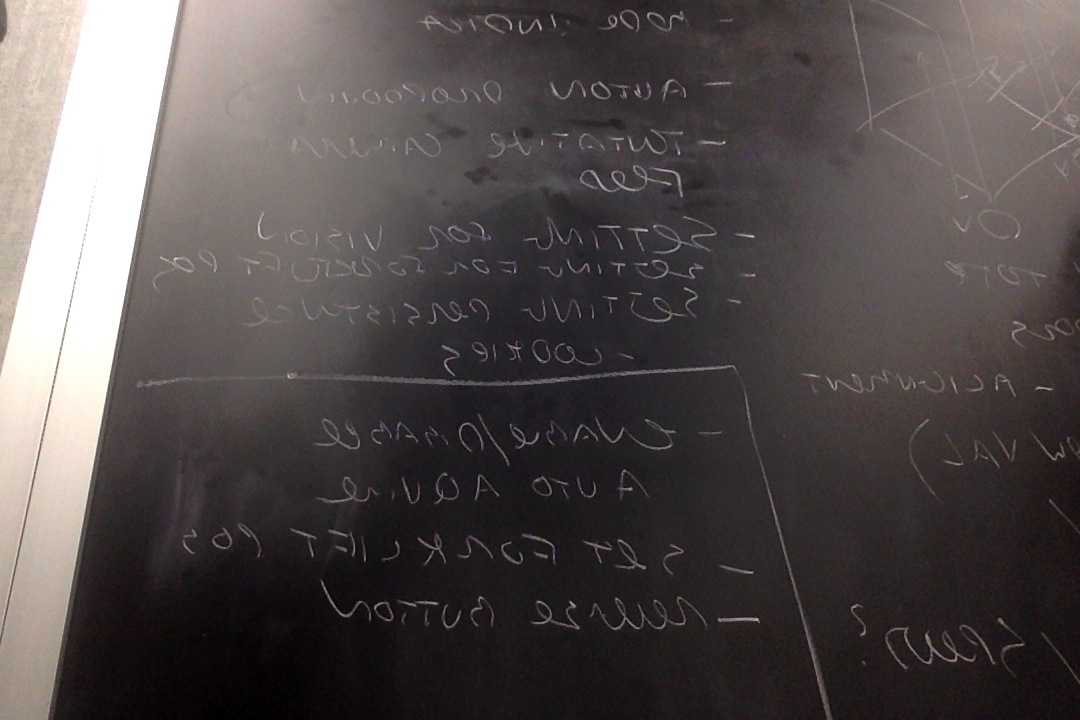 - MODE INDICA
- AUTON DROPDOWN
- TENTATIVE CAMERA
FEED
- SETTING FOR VISION
- SETTING FOR FORKLIFT POS
- SETTING PERSISTENCE
- COOKIES
- ENABLE/DISABLE
AUTO AQUIRE
- SET FORKLIFT POS
- REVERSE BUTTON
OV
TOTE
- ALIGNMENT
VAL)
SPEED?